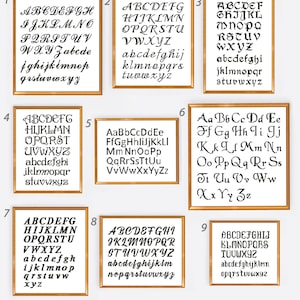 1
ABCDEFGH
IJKLMNOP
QRSTUV
WXYZabcde
fghijklmno
pqrstuvwxyz
2
ABCDEFG
HIJKLMN
OPQRSTU
VWXYZ
abcdefghi
jklmnopqr
stuvwxyz
3
ABCDEF
GHIJKL
MNOPQ
RSTUV
WXYZ
abcdefghi
jklmnopqr
stuvwxyz
4
ABCDEFG
HIJKLMN
OPQRST
UVWXYZ
abcdefghi
jklmnopqr
stuvwxyz
5
AaBbCcDdEe
FfGgHhIiJjKkLl
MmNnOoPp
QqRrSsTtUu
VvWwXxYyZz
6
Aa Bb Cc Dd Ee
Ff Gg Hh Ii Jj
Kk Ll Mm Nn
Oo Pp Qq Rr
Ss Tt Uu Vv Ww
Xx Yy Zz
7
ABCDEFG
HIJKLMN
OPQRSTU
VWXYZ
abcdefgh
ijklmnop
qrstuvw
xyz
8
ABCDEFGH
IJKLMNOPQ
RSTUVWXYZ
abcdefghijklmn
opqrstuvwxyz
9
ABCDEFGHIJ
KLMNOPQRS
TUVWXYZ
abcdefghijklmnop
qrstuvwxyz